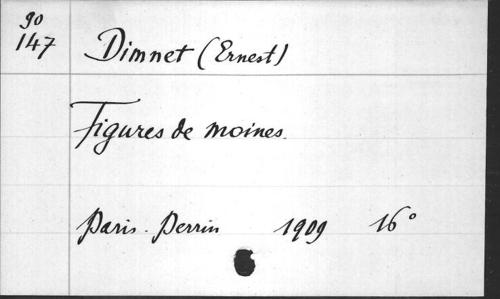 90
147
Dimnet (Ernest)
Figures de moines.
Paris. Perrin 1909 16°